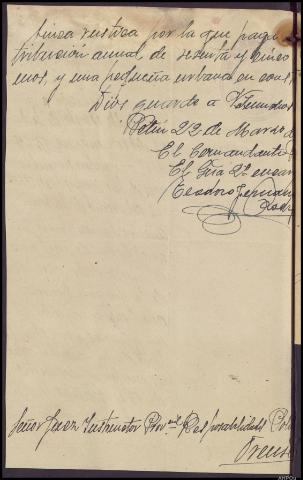 finca rustica por la que paga
tribucion anual de sesenta y cinco
enos, y una pequeña urbana en cons
Dios guarde a V. muchos
Petin 22 de Marzo d
El Comandante
El Gria 2º encar
Teodoro Fernan
Señor Juez Instructor Prov. de Responsabilidds Pol
Orense
AHPOU